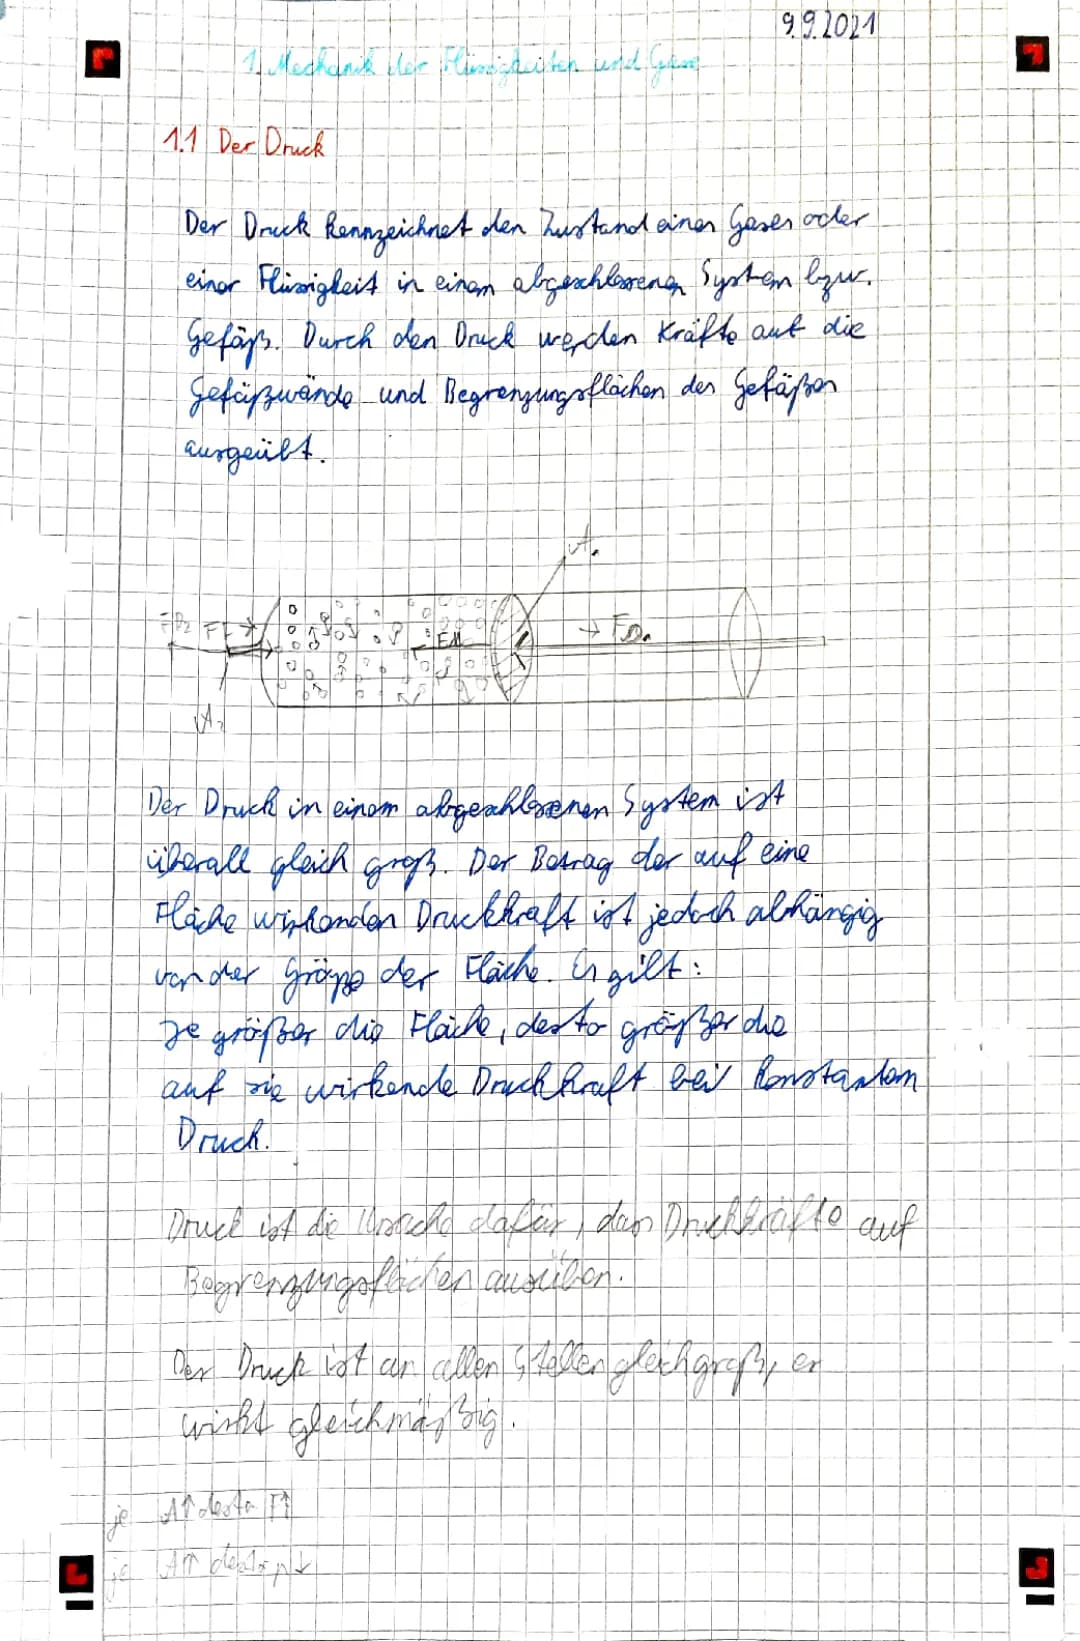 9.9.2021
1. Mechanik der Flüssigkeiten und Gase
1.1 Der Druck
Der Druck kennzeichnet den Zustand eines Gases oder
einer Flüssigkeit in einem abgeschlossenen System bzw.
Gefäß. Durch den Druck werden Kräfte auf die
Gefäßwände und Begrenzungsflächen des Gefäßes
ausgeübt.
A1
FD2 F1 FD1
A2
Der Druck in einem abgeschlossenen System ist
überall gleich groß. Der Betrag der auf eine
Fläche wirkenden Druckkraft ist jedoch abhängig
von der Größe der Fläche. Es gilt:
Je größer die Fläche, desto größer die
auf sie wirkende Druckkraft bei konstantem
Druck.
Druck ist die Ursache dafür, das Druckkräfte auf
Begrenzungsflächen ausüben.
Der Druck ist an allen Stellen gleichgroß, er
wirkt gleichmäßig.
je A↑ desto F↑
je A↑ desto p↓